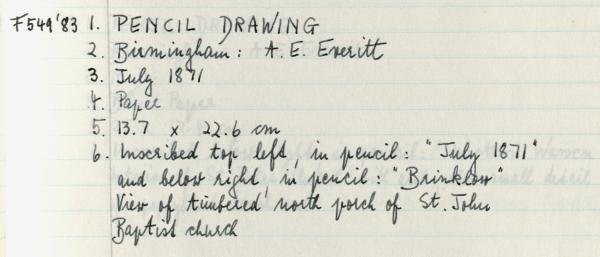 F549'83 1. PENCIL DRAWING
2. Birmingham: A. E. Everitt
3. July 1871
4. Paper
5. 13.7 x 22.6 cm
6. Inscribed top left, in pencil: "July 1871"
and below right in pencil "Brinklow"
View of timbered north porch of St. John
Baptist church